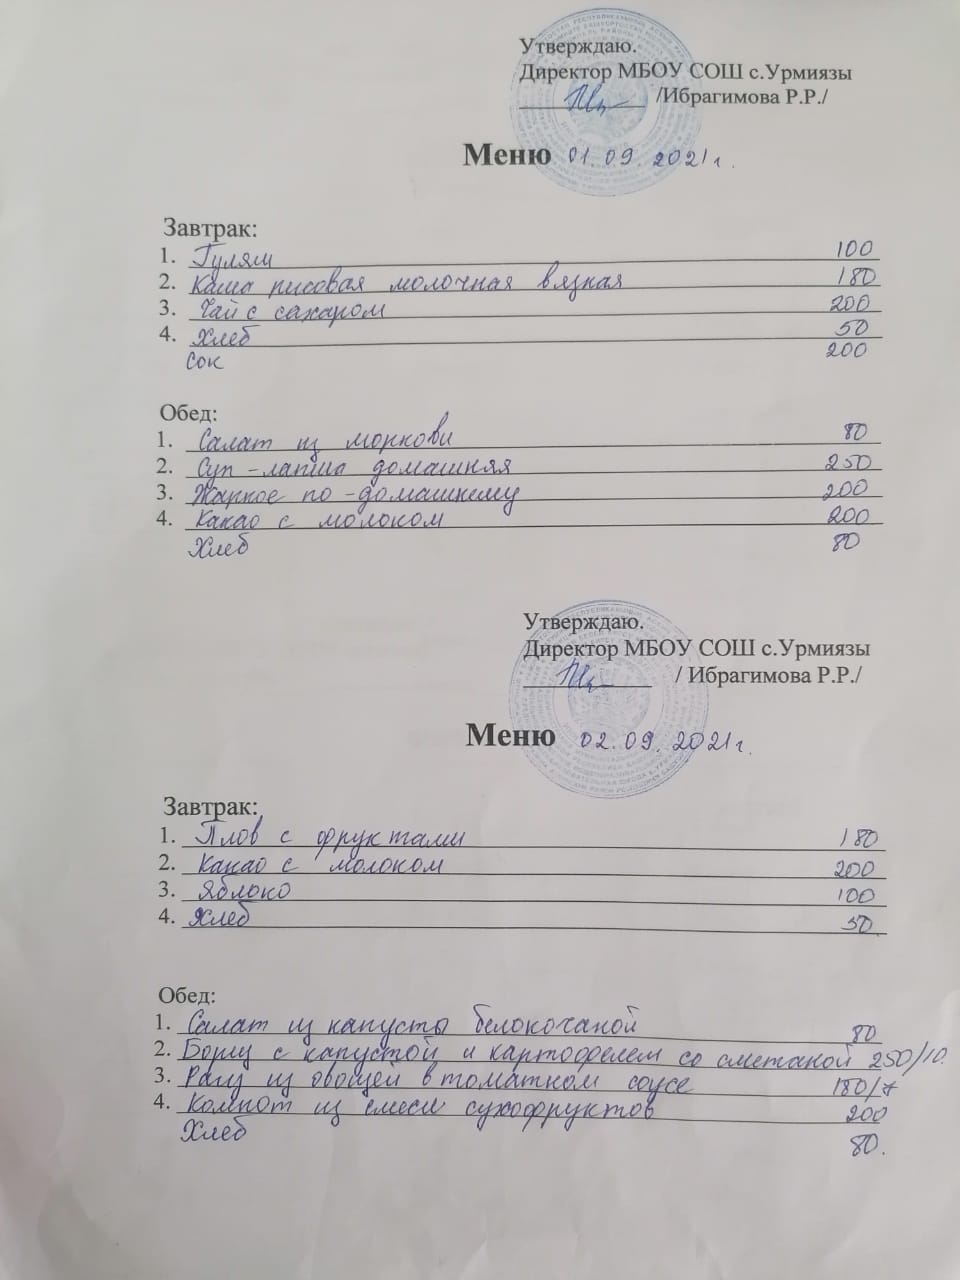 Утверждаю.
Директор МБОУ СОШ с.Урмиязы
/Ибрагимова Р.Р./
Меню 01.09.2021г.
Завтрак:
1. Гуляш 100
2. Каша рисовая молочная вязкая 180
3. Чай с сахаром 200
4. Хлеб 50
Сок 200
Обед:
1. Салат из моркови 80
2. Суп-лапша домашняя 250
3. Жаркое по-домашнему 200
4. Какао с молоком 200
Хлеб 80
Утверждаю.
Директор МБОУ СОШ с.Урмиязы
/ Ибрагимова Р.Р./
Меню 02.09.2021г.
Завтрак:
1. Плов с фруктами 180
2. Какао с молоком 200
3. Яблоко 100
4. Хлеб 50
Обед:
1. Салат из капусты белокочаной 80
2. Борщ с капустой и картофелем со сметаной 250/10.
3. Рагу из овощей в томатном соусе 180/7
4. Компот из смеси сухофруктов 200
Хлеб 80.